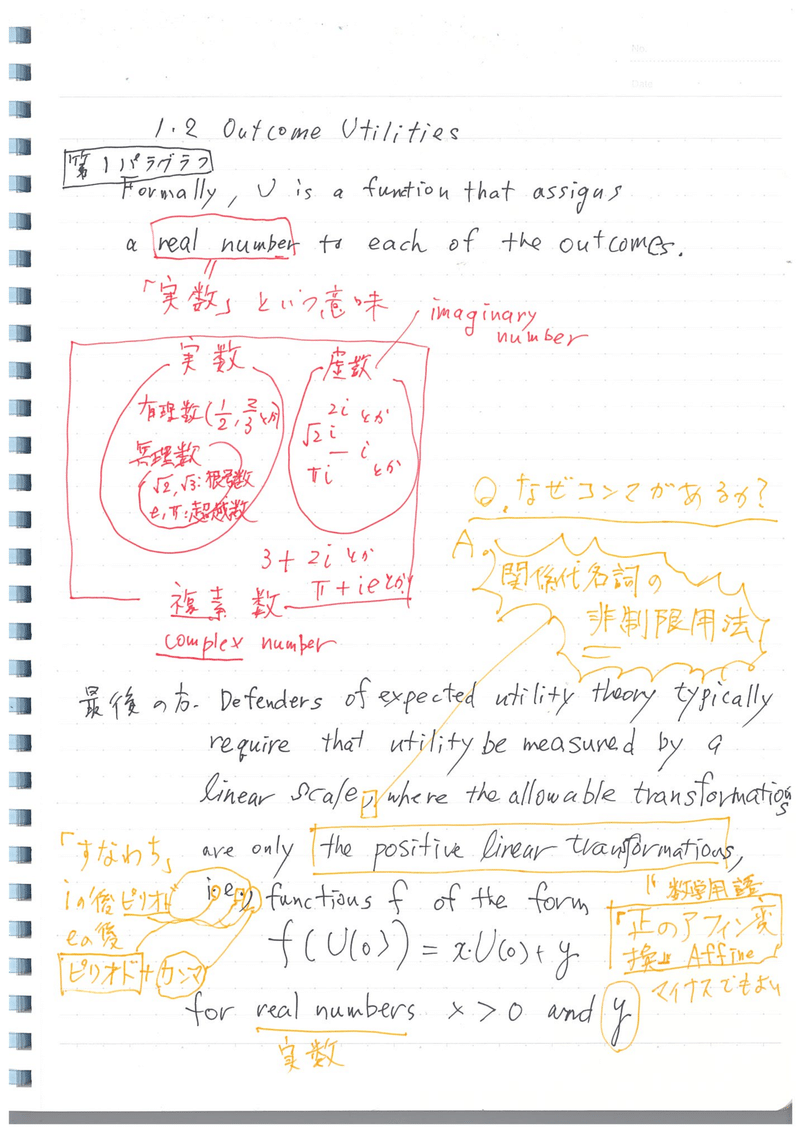 No.
Date
1.2 Outcome Utilities
第1パラグラフ
Formally, U is a function that assigns
a real number to each of the outcomes.
「実数」という意味
imaginary
number
実数
虚数
有理数(1/2, 2/3とか)
無理数
√2, √3:根号数
e, π:超越数
2iとか
√2i
πi
iとか
3+2iとか
π+ieとか
複素数
complex number
Q.なぜコンマがあるか?
A.
関係代名詞の
非制限用法
最後の方. Defenders of expected utility theory typically
require that utility be measured by a
linear scale, where the allowable transformations
are only the positive linear transformations,
i.e., functions f of the form
f(U(o)) = x·U(o) + y
for real numbers x > 0 and y
「すなわち」
iの後ピリオド
eの後
ピリオド+カンマ
数学用語
「正のアフィン変
換」 Affine
マイナスでもよい
実数